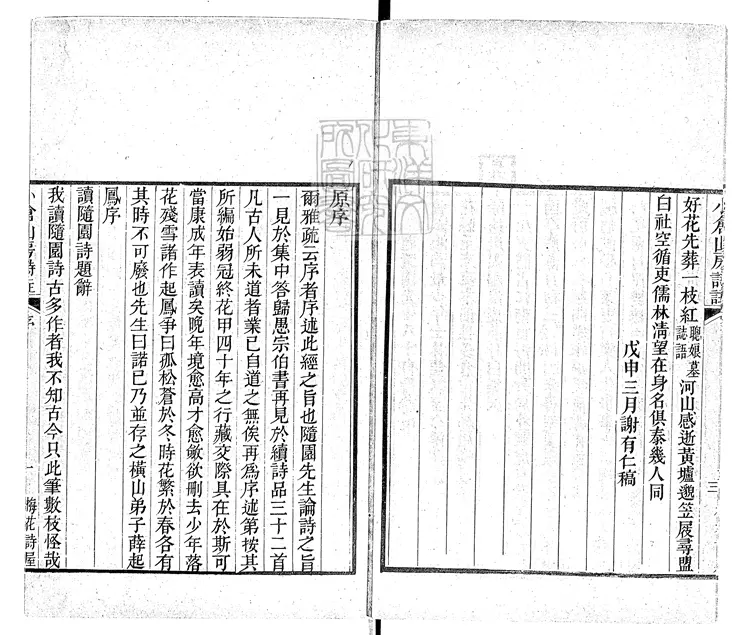 小倉山房詩註
三
好花先葬一枝紅聰娘墓誌語河山感逝黃壚邈笠屐尋盟
白社空循吏儒林淸望在身名俱泰幾人同
戊申三月謝有仁稿
原序
爾雅疏云序者序述此經之旨也隨園先生論詩之旨
一見於集中答歸愚宗伯書再見於續詩品三十二首
凡古人所未道者業已自道之無俟再爲序述第按其
所編始弱冠終花甲四十年之行藏交際具在於斯可
當康成年表讀矣晚年境愈高才愈斂欲刪去少年落
花殘雪諸作起鳳爭曰孤松蒼於冬時花繁於春各有
其時不可廢也先生曰諾已乃並存之橫山弟子薛起
鳳序
讀隨園詩題辭
我讀隨園詩古多作者我不知古今只此筆數枝怪哉
小倉山房詩註
序
一
梅花詩屋